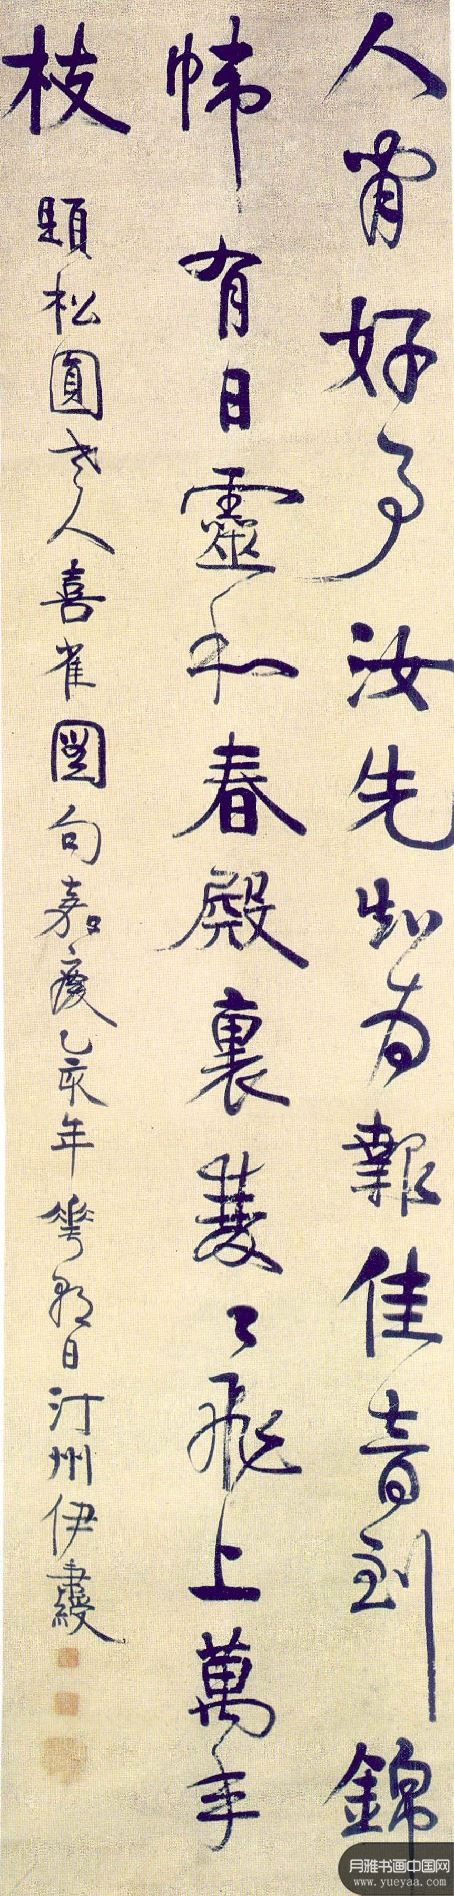 人間好事汝先知為報佳音到錦
幃有日靈和春殿裏雙〻飛上萬年
枝
題松圓老人喜雀圖句嘉慶乙亥年華朝日汀州伊秉綬
月雅书画中国网
www.yueyaa.com